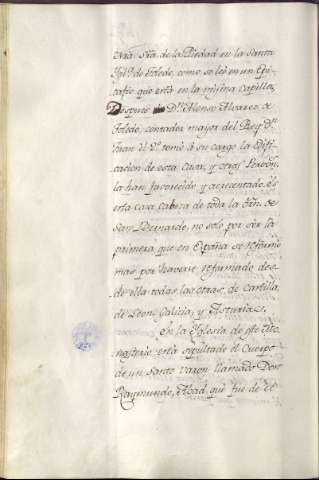 ntrâ Srâ de la Piedad en la Santa
Iglª de Toledo, como se leè en un Epi-
tafio que está en la misma capilla,
Despues Dn Alonso Alvarez de
Toledo, contador mayor del Rey Dn
Juan el 2º tomó á su cargo la Edifi-
cacion de esta Casa, y otras Person.s
la han favorecido, y acrecentado. Es
esta casa Cabeza de toda la Orn de
San Bernardo, no solo por ser la
primera que en España se reformò
mas por haverse reformado des-
de ella todas las otras, de Castilla,
de Leon, Galicia, y Asturias.
En la Iglesia de este Mo-
nasterio está sepultado el Cuerpo
de un santo varon llamado Don
Raymundo, Abad que fue de